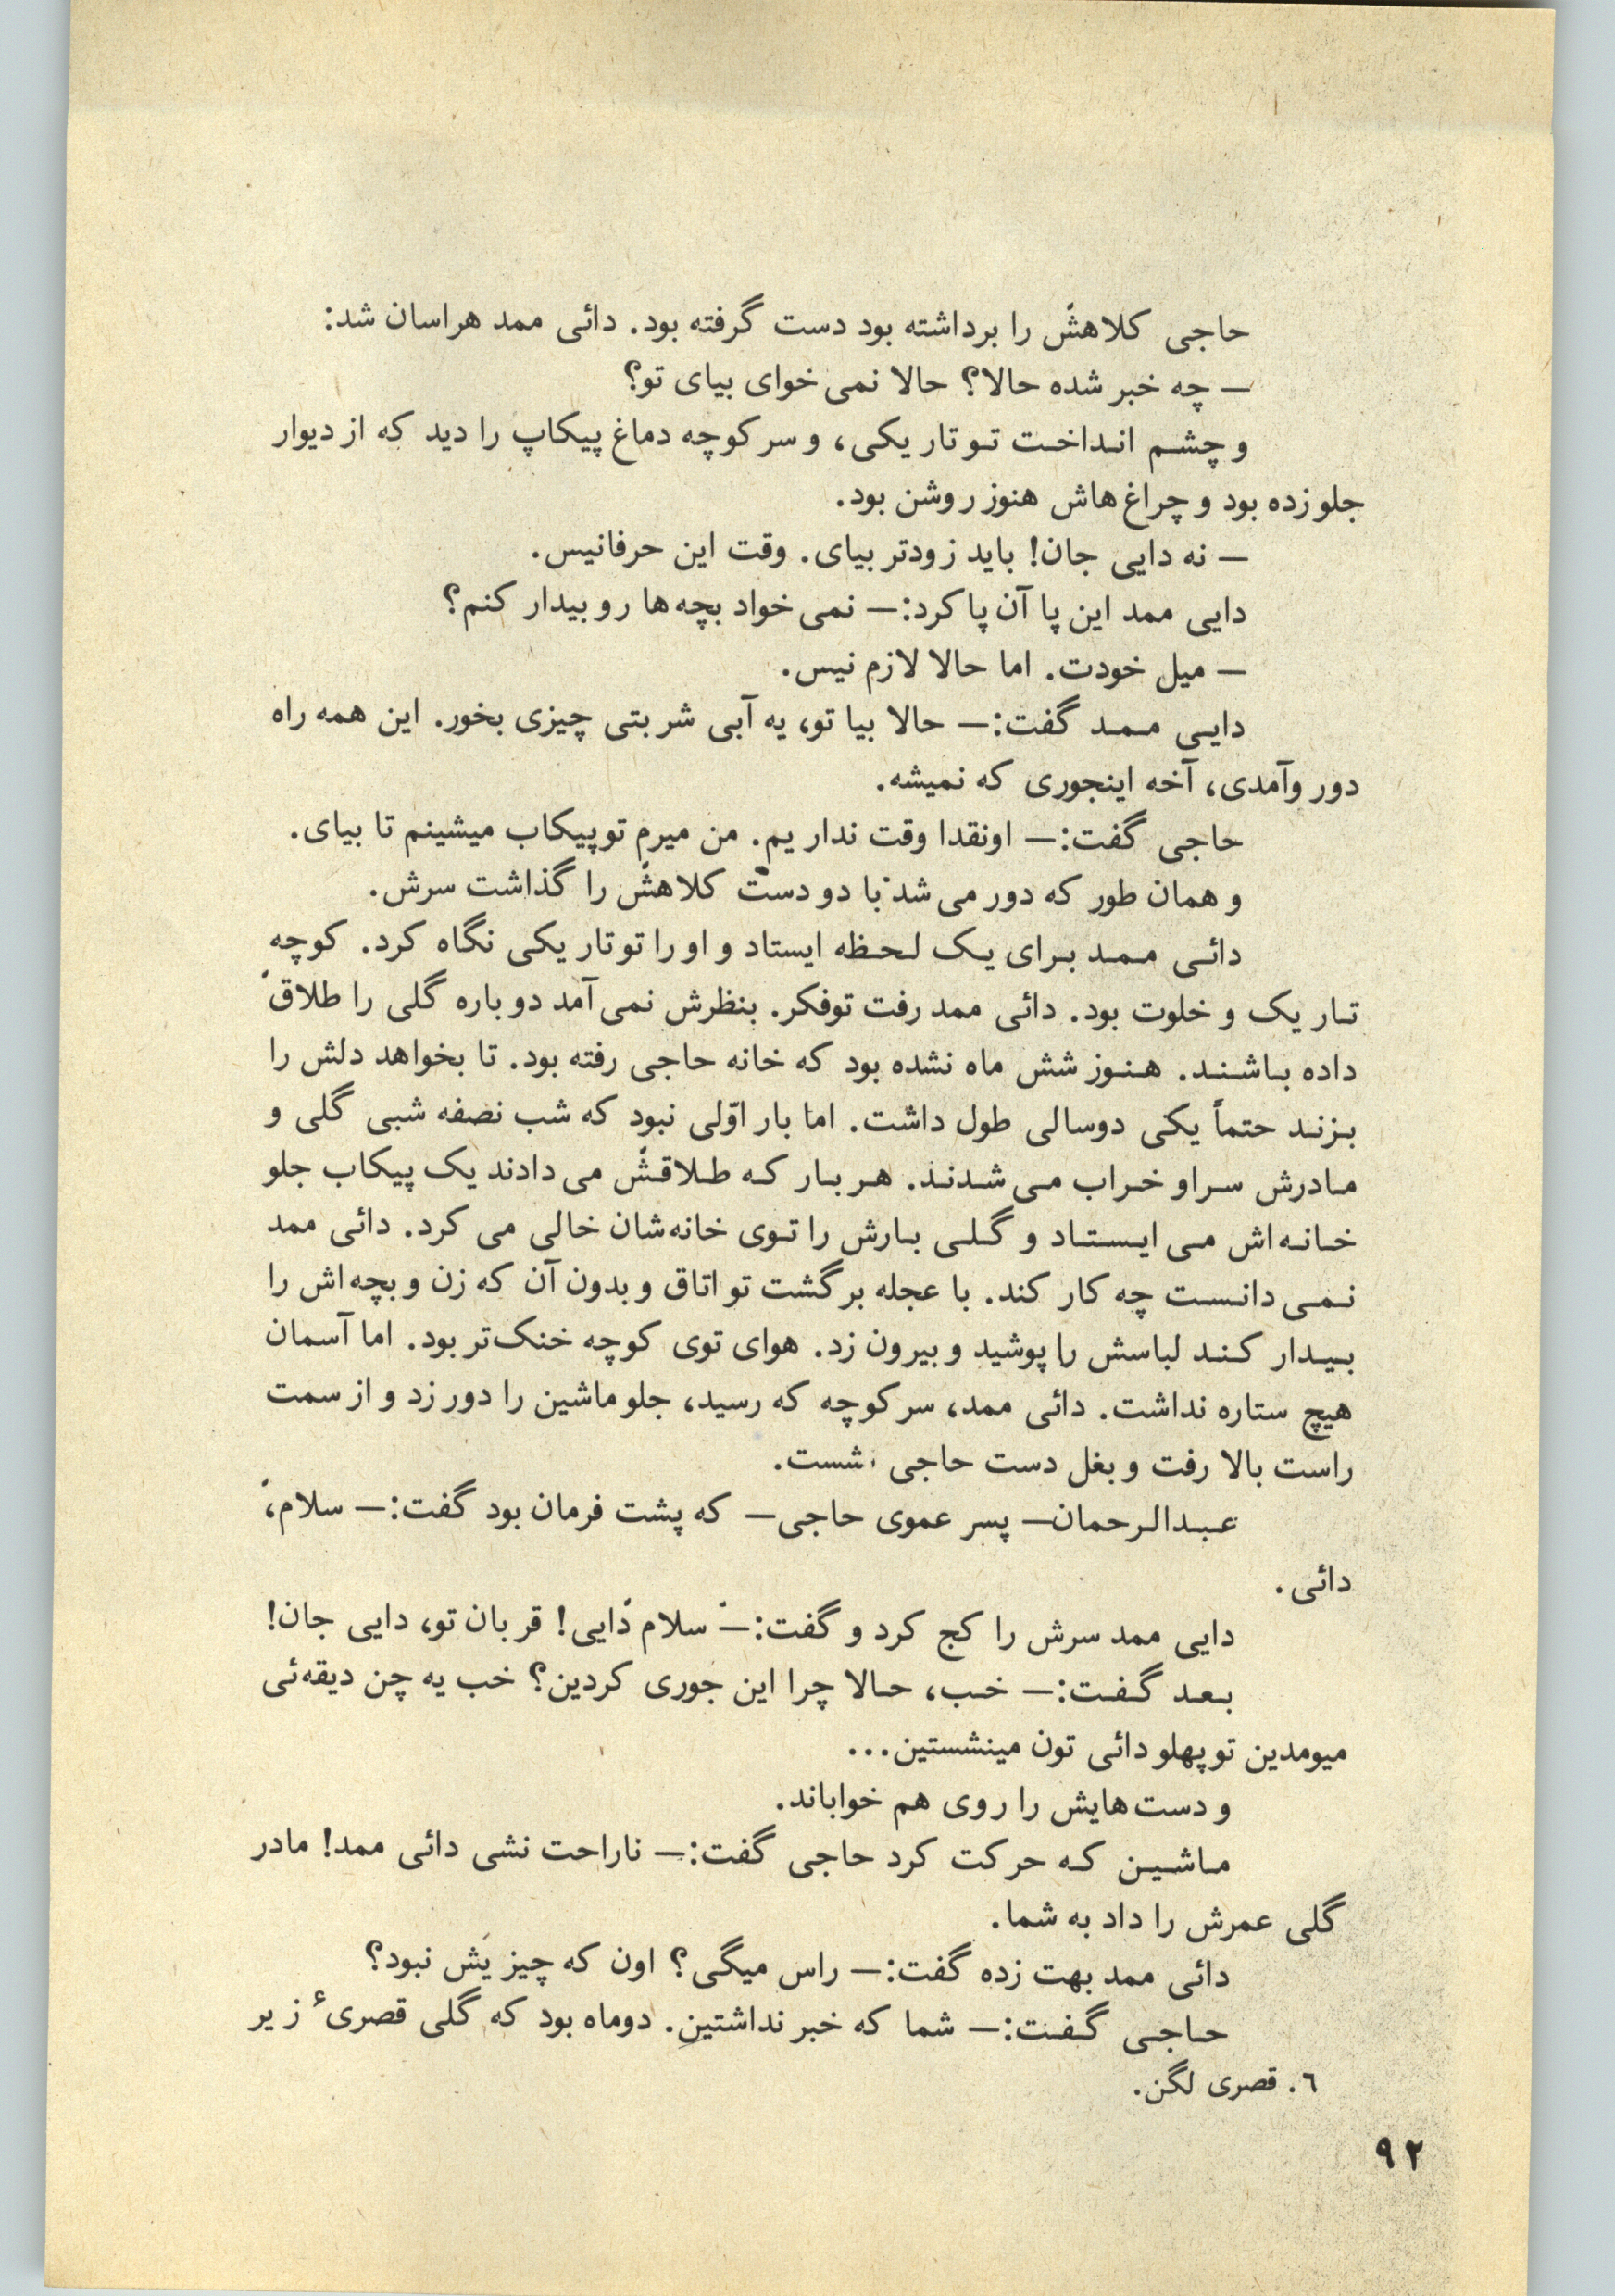 حاجی کلاهش را برداشته بود دست گرفته بود. دائی ممد هراسان شد:
— چه خبر شده حالا؟ حالا نمی‌خوای بیای تو؟
و چشم انداخت تو تاریکی، و سر کوچه دماغ پیکاپ را دید که از دیوار
جلو زده بود و چراغ‌هاش هنوز روشن بود.
— نه دایی جان! باید زودتر بیای. وقت این حرفا نیس.
دایی ممد این پا آن پا کرد:— نمی‌خواد بچه‌ها رو بیدار کنم؟
— میل خودت. اما حالا لازم نیس.
دایی ممد گفت:— حالا بیا تو، یه آبی شربتی چیزی بخور. این همه راه
دور وآمدی، آخه اینجوری که نمیشه.
حاجی گفت:— اونقدا وقت نداریم. من میرم تو پیکاب میشینم تا بیای.
و همان طور که دور می‌شد با دو دست کلاهش را گذاشت سرش.
دائی ممد برای یک لحظه ایستاد و او را تو تاریکی نگاه کرد. کوچه
تاریک و خلوت بود. دائی ممد رفت تو فکر. بنظرش نمی‌آمد دوباره گلی را طلاق
داده باشند. هنوز شش ماه نشده بود که خانه حاجی رفته بود. تا بخواهد دلش را
بزند حتماً یکی دوسالی طول داشت. اما بار اوّلی نبود که شب نصفه شبی گلی و
مادرش سراو خراب می‌شدند. هر بار که طلاقش می‌دادند یک پیکاب جلو
خانه‌اش می‌ایستاد و گلی بارش را توی خانه‌شان خالی می‌کرد. دائی ممد
نمی‌دانست چه کار کند. با عجله برگشت تو اتاق و بدون آن که زن و بچه‌اش را
بیدار کند لباسش را پوشید و بیرون زد. هوای توی کوچه خنک‌تر بود. اما آسمان
هیچ ستاره نداشت. دائی ممد، سر کوچه که رسید، جلو ماشین را دور زد و از سمت
راست بالا رفت و بغل دست حاجی نشست.
عبدالرحمان— پسر عموی حاجی— که پشت فرمان بود گفت:— سلام،
دائی.
دایی ممد سرش را کج کرد و گفت:— سلام دایی! قربان تو، دایی جان!
بعد گفت:— خب، حالا چرا این جوری کردین؟ خب یه چن دیقه‌ئی
میومدین تو پهلو دائی تون مینشستین...
و دست‌هایش را روی هم خواباند.
ماشین که حرکت کرد حاجی گفت:— ناراحت نشی دائی ممد! مادر
گلی عمرش را داد به شما.
دائی ممد بهت زده گفت:— راس میگی؟ اون که چیزیش نبود؟
حاجی گفت:— شما که خبر نداشتین. دوماه بود که گلی قصری⁶ زیر
٦. قصری لگن.
٩٢